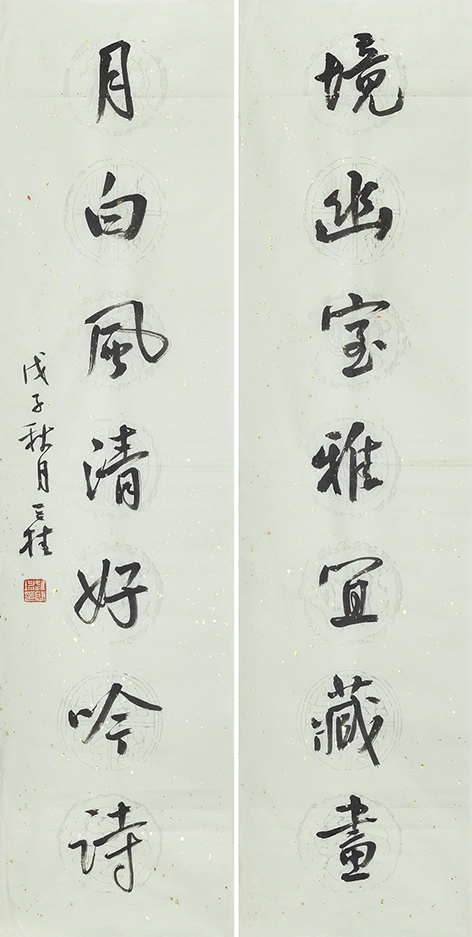 境幽室雅宜藏畫
月白風清好吟诗
戊子秋月